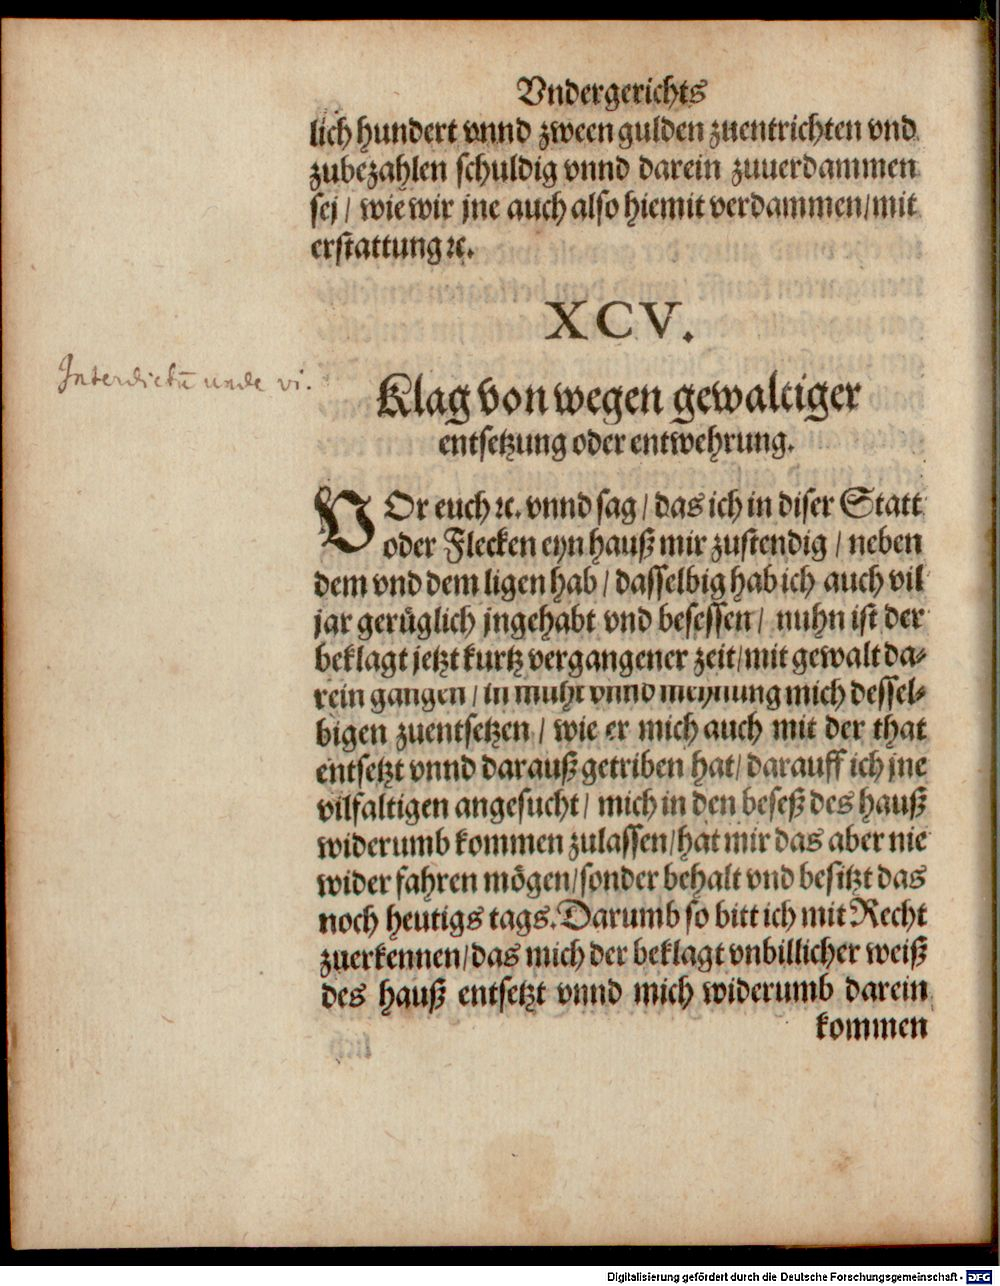 Vndergerichts
lich hundert vnnd zween gulden zuentrichten vnd
zubezahlen schuldig vnnd darein zuuerdammen
sej / wie wir jne auch also hiemit verdammen / mit
erstattung ꝛc.
XCV.
Interdictū unde vi.
Klag von wegen gewaltiger
entsetzung oder entwehrung.
VOr euch ꝛc. vnnd sag / das ich in diser Statt
oder Flecken eyn hauß mir zustendig / neben
dem vnd dem ligen hab / dasselbig hab ich auch vil
jar gerůglich jngehabt vnd besessen / nuhn ist der
beklagt jetzt kurtz vergangener zeit / mit gewalt da⸗
rein gangen / in muht vnnd meynung mich dessel⸗
bigen zuentsetzen / wie er mich auch mit der that
entsetzt vnnd darauß getriben hat / darauff ich jne
vilfaltigen angesucht / mich in den beseß des hauß
widerumb kommen zulassen / hat mir das aber nie
wider fahren mögen / sonder behalt vnd besitzt das
noch heutigs tags. Darumb so bitt ich mit Recht
zuerkennen / das mich der beklagt vnbillicher weiß
des hauß entsetzt vnnd mich widerumb darein
kommen
Digitalisierung gefördert durch die Deutsche Forschungsgemeinschaft - DFG